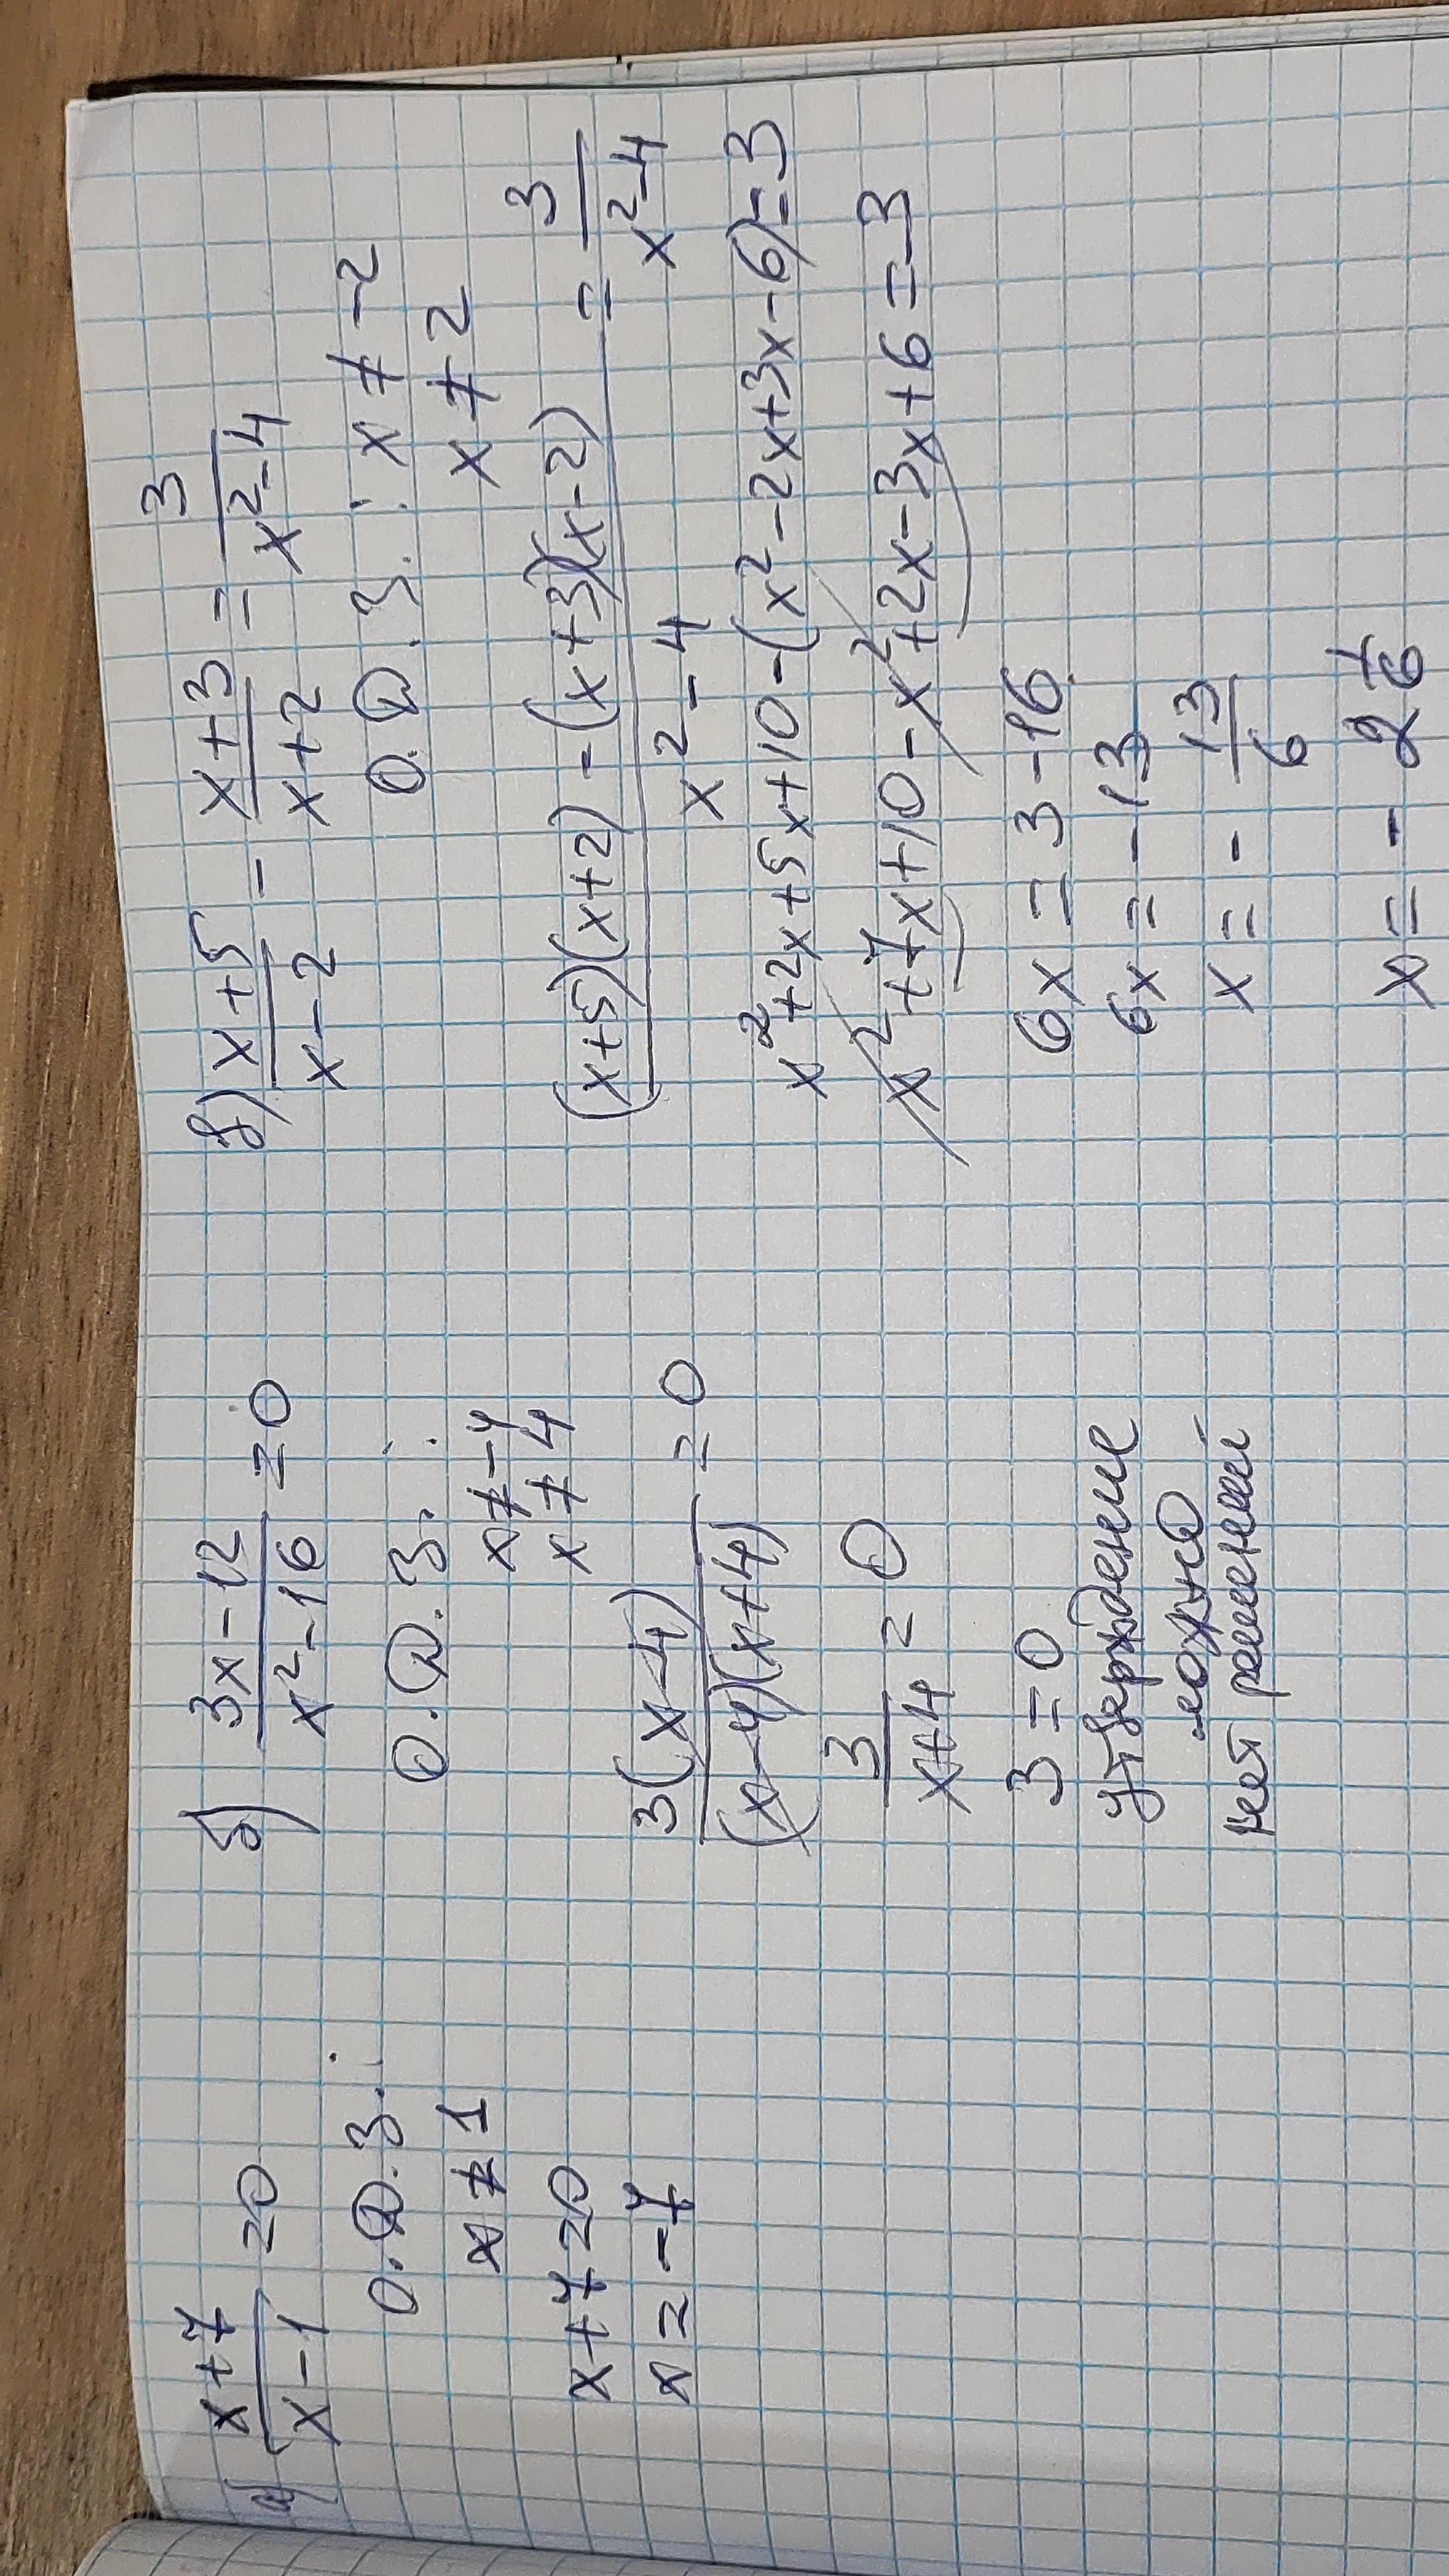 а) (x+7)/(x-1) = 0
О.Д.З.:
x ≠ 1
x+7=0
x = -7
б) (3x-12)/(x²-16) = 0
О.Д.З.:
x ≠ -4
x ≠ 4
3(x-4)/((x-4)(x+4)) = 0
3/(x+4) = 0
3 = 0
утверждение
ложно
нет решений
в) (x+5)/(x-2) - (x+3)/(x+2) = 3/(x²-4)
О.Д.З.: x ≠ -2
x ≠ 2
((x+5)(x+2) - (x+3)(x-2))/(x²-4) = 3/(x²-4)
x²+2x+5x+10-(x²-2x+3x-6)=3
x²+7x+10-x²+2x-3x+6=3
6x = 3-16
6x = -13
x = -13/6
x = -2 1/6